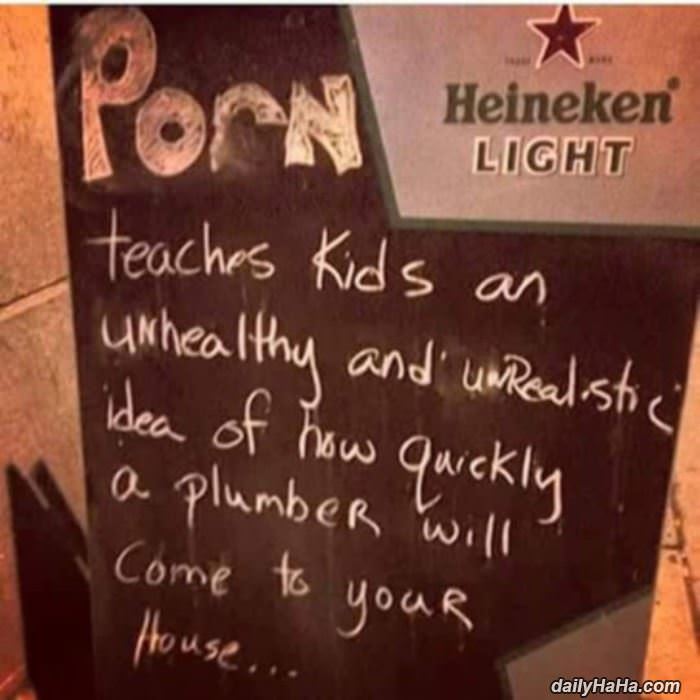 Porn
Heineken®
LIGHT
teaches Kids an
unhealthy and unRealistic
idea of how quickly
a plumbeR will
Come to youR
House...
dailyHaHa.com